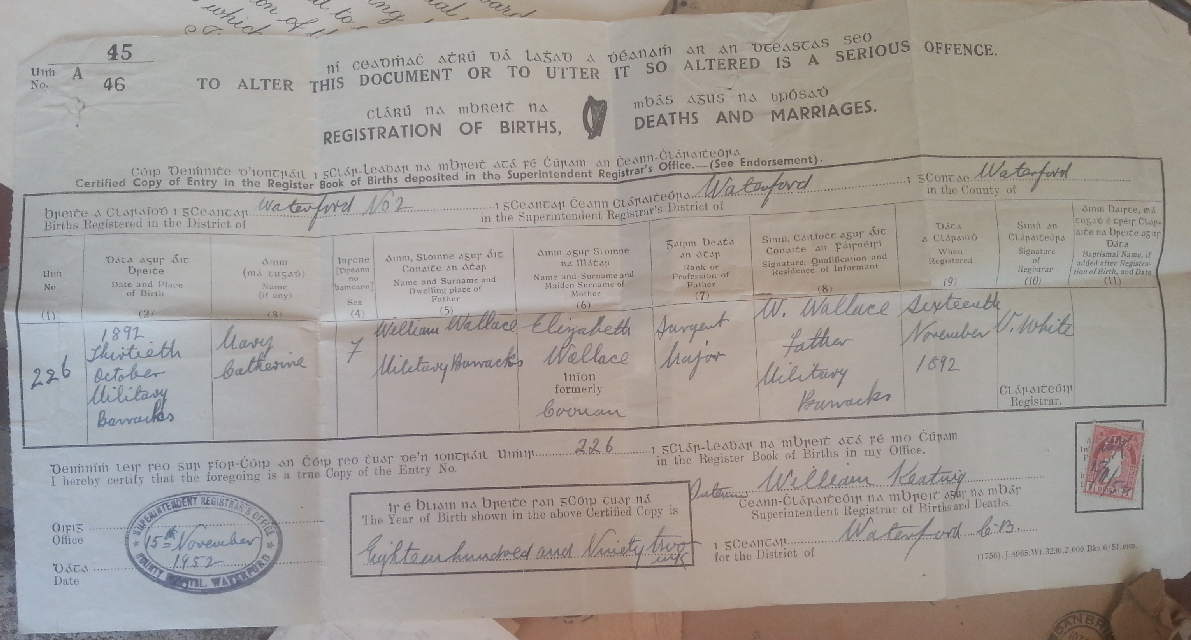 45
Uimh. No. A 46
ní ceadmhach athrú dá laghad a dhéanamh ar an dteastas seo
TO ALTER THIS DOCUMENT OR TO UTTER IT SO ALTERED IS A SERIOUS OFFENCE.
clárú na mbreith na mbás agus na bpósadh
REGISTRATION OF BIRTHS, DEATHS AND MARRIAGES.
Cóip Dheimhnithe d'iontráil i gClár-leabhar na mbreith atá fé chúram an Ceann-Chláraitheora
Certified Copy of Entry in the Register Book of Births deposited in the Superintendent Registrar's Office.—(See Endorsement).
Breithe a Cláraíodh i gCeantar Waterford No 2 i gCeantar Ceann Cláraitheora Waterford i gContae Waterford
Births Registered in the District of in the Superintendent Registrar's District of in the County of
Uimh. No. (1)
Dáta agus Áit Breithe Date and Place of Birth (2)
Ainm (má tugadh) Name (if any) (3)
Sex (4)
Ainm, Sloinne agus Áit Conaithe an Athar Name and Surname and Dwelling place of Father (5)
Ainm agus Sloinne na Máthar Name and Surname and Maiden Surname of Mother (6)
Gairm Beatha an Athar Rank or Profession of Father (7)
Signature, Qualification and Residence of Informant (8)
Dáta a Cláraíodh When Registered (9)
Síniú an Cláraitheora Signature of Registrar (10)
Baptismal Name, if added after Registration of Birth, and Date (11)
226
1892 Thirtieth October Military Barracks
Mary Catherine
F
William Wallace Military Barracks
Elizabeth Wallace formerly Coonan
Sargent Major
W. Wallace Father Military Barracks
Sixteenth November 1892
V. White
Cláraitheoir Registrar.
Deimhním leis seo gur fíor-Chóip an Chóip seo thuas de'n iontráil Uimhir 226 i gClár-leabhar na mbreith atá fé mo Chúram
I hereby certify that the foregoing is a true Copy of the Entry No. in the Register Book of Births in my Office.
William Keating
Ceann-Chláraitheoir na mBreith agus na mBás
Superintendent Registrar of Births and Deaths.
Oifig
Office
Dáta
Date
SUPERINTENDENT REGISTRAR'S OFFICE
15th November
1952
COUNTY HOSPITAL, WATERFORD
Is é Bliain na Breithe san gCóip thuas ná
The Year of Birth shown in the above Certified Copy is
Eighteen hundred and Ninety two
i gCeantar Waterford C.B.
for the District of